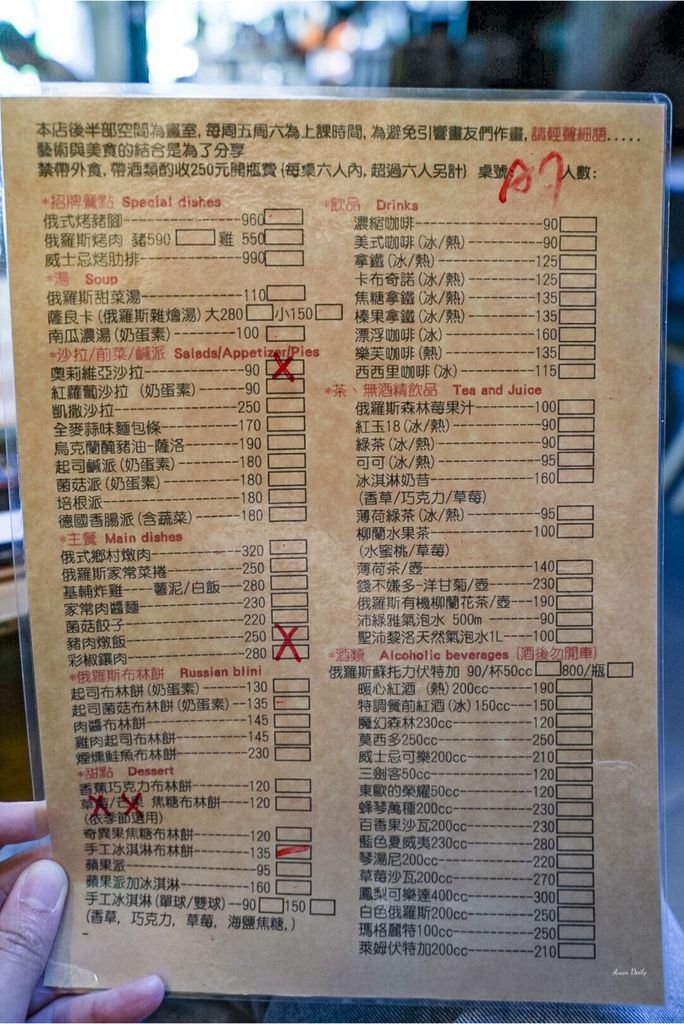 本店後半部空間為畫室, 每周五周六為上課時間, 為避免引響畫友們作畫, 請輕聲細語.....
藝術與美食的結合是為了分享
禁帶外食, 帶酒類酌收250元開瓶費 (每桌六人內, 超過六人另計) 桌號: A7 人數:
*招牌餐點 Special dishes
俄式烤豬腳 960
俄羅斯烤肉 豬590 雞 550
威士忌烤肋排 990
*湯 Soup
俄羅斯甜菜湯 110
薩良卡 (俄羅斯雜燴湯) 大280 小150
南瓜濃湯 (奶蛋素) 100
*沙拉/前菜/鹹派 Salads/Appetizer/Pies
奧莉維亞沙拉 90
紅蘿蔔沙拉 (奶蛋素) 90
凱撒沙拉 250
全麥蒜味麵包條 170
烏克蘭醃豬油-薩洛 190
起司鹹派 (奶蛋素) 180
菌菇派 (奶蛋素) 180
培根派 180
德國香腸派 (含蔬菜) 180
*主餐 Main dishes
俄式鄉村燉肉 320
俄羅斯家常菜捲 250
基輔炸雞 薯泥/白飯 280
家常肉醬麵 230
菌菇餃子 220
豬肉燉飯 250
彩椒鑲肉 280
*俄羅斯布林餅 Russian blini
起司布林餅 (奶蛋素) 130
起司菌菇布林餅 (奶蛋素) 135
肉醬布林餅 145
雞肉起司布林餅 145
煙燻鮭魚布林餅 230
*甜點 Dessert
香蕉巧克力布林餅 120
焦糖布林餅 120
(依季節選用)
奇異果焦糖布林餅 120
手工冰淇淋布林餅 135
蘋果派 95
蘋果派加冰淇淋 160
手工冰淇淋 (單球/雙球) 90 150
(香草, 巧克力, 草莓, 海鹽焦糖,)
*飲品 Drinks
濃縮咖啡 90
美式咖啡 (冰/熱) 90
拿鐵 (冰/熱) 125
卡布奇諾 (冰/熱) 125
焦糖拿鐵 (冰/熱) 135
榛果拿鐵 (冰/熱) 135
漂浮咖啡 (冰) 160
樂芙咖啡 (冰/熱) 135
西西里咖啡 (冰) 115
*茶、無酒精飲品 Tea and Juice
俄羅斯森林莓果汁 100
紅玉18 (冰/熱) 90
綠茶 (冰/熱) 90
可可 (冰/熱) 95
冰淇淋奶昔 160
(香草/巧克力/草莓)
薄荷綠茶 (冰/熱) 95
柳蘭水果茶 100
(水蜜桃/草莓)
薄荷茶/壺 140
錢不嫌多-洋甘菊/壺 230
俄羅斯有機柳蘭花茶/壺 190
沛綠雅氣泡水 500m 90
聖沛黎洛天然氣泡水1L 100
*酒類 Alcoholic beverages (酒後勿開車)
俄羅斯蘇托力伏特加 90/杯50cc 800/瓶
暖心紅酒 (熱) 200cc 190
特調餐前紅酒 (冰) 150cc 150
魔幻森林230cc 120
莫西多250cc 250
威士忌可樂200cc 210
三劍客50cc 120
東歐的榮耀50cc 120
蜂琴萬種200cc 220
百香果沙瓦200cc 210
藍色夏威夷230cc 280
琴湯尼200cc 220
草莓沙瓦200cc 270
鳳梨可樂達400cc 300
白色俄羅斯200cc 250
瑪格麗特100cc 250
萊姆伏特加200cc 210
Anan Daily